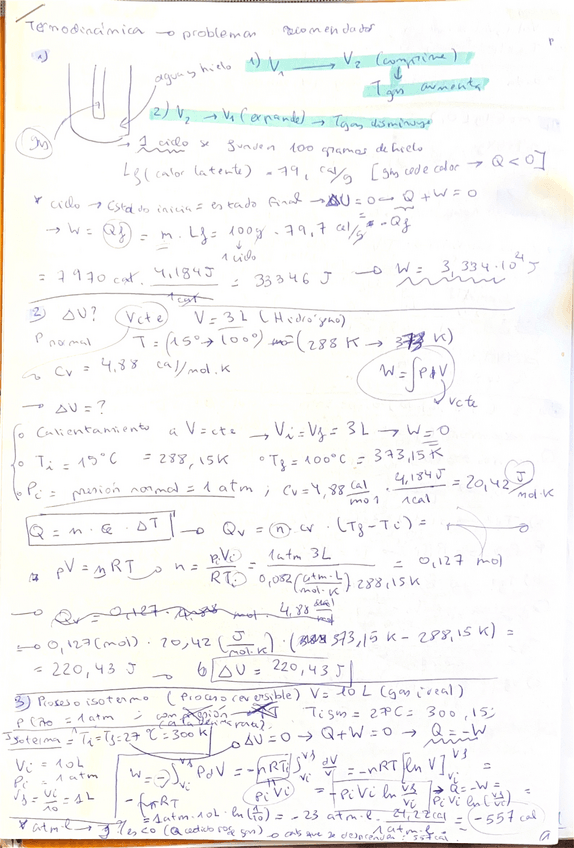 Termodinámica → problemas recomendados
a)
agua y hielo
gas
1) V1 → V2 (comprime)
↓
Tgas aumenta
2) V2 → V1 (expande) → Tgas disminuye
→ 1 ciclo × funden 100 gramos de hielo
Lf (calor latente) = 79, cal/g [gas cede calor → Q < 0]
* ciclo → Estado inicial = estado final → ΔU = 0 → Q + W = 0
→ W = Qf = m · Lf = 100g · 79,7 cal/g = -Qf
1 ciclo
= 7970 cal · 4,184 J / 1 cal = 33346 J → W = 3,334·10⁴ J
2) ΔU? Vcte V = 3L (Hidrógeno)
P normal T = (15° → 100°) (288 K → 373 K)
Cv = 4,88 cal/mol·K
W = ∫PdV
Vcte
→ ΔU = ?
Calientamiento a V = cte → Vi = Vf = 3L → W = 0
Ti = 15°C = 288,15K Tf = 100°C = 373,15K
Pi = presión normal = 1 atm ; Cv = 4,88 cal/mol · 4,184J/1cal = 20,42 J/mol·K
Q = n · c · ΔT → Qv = n · cv · (Tf - Ti) =
* pV = nRT → n = PiVi/RTi = 1atm 3L / 0,082 (atm·L/mol·K) · 288,15K = 0,127 mol
→ 0,127 (mol) · 20,42 (J/mol·K) · (373,15K - 288,15K) =
= 220,43 J → ΔU = 220,43 J
3) Proceso isotermo (Proceso reversible) V = 10 L (gas ideal)
= 1 atm ; Tgas = 27°C = 300,15
Isoterma = Ti = Tf = 27°C = 300K → ΔU = 0 → Q + W = 0 → Q = -W
Vi = 10L
Pi = 1 atm
Vf = Vi/10 = 1L
W = -∫ PdV = -nRT ∫ dV/V = -nRT [ln V] =
nRT
PiVi
= -PiVi ln Vf/Vi → Q = -W = PiVi ln (Vf/Vi)
= 1atm · 10L · ln (1/10) = -23 atm·L · 24,22 cal / 1 atm·L = -557 cal